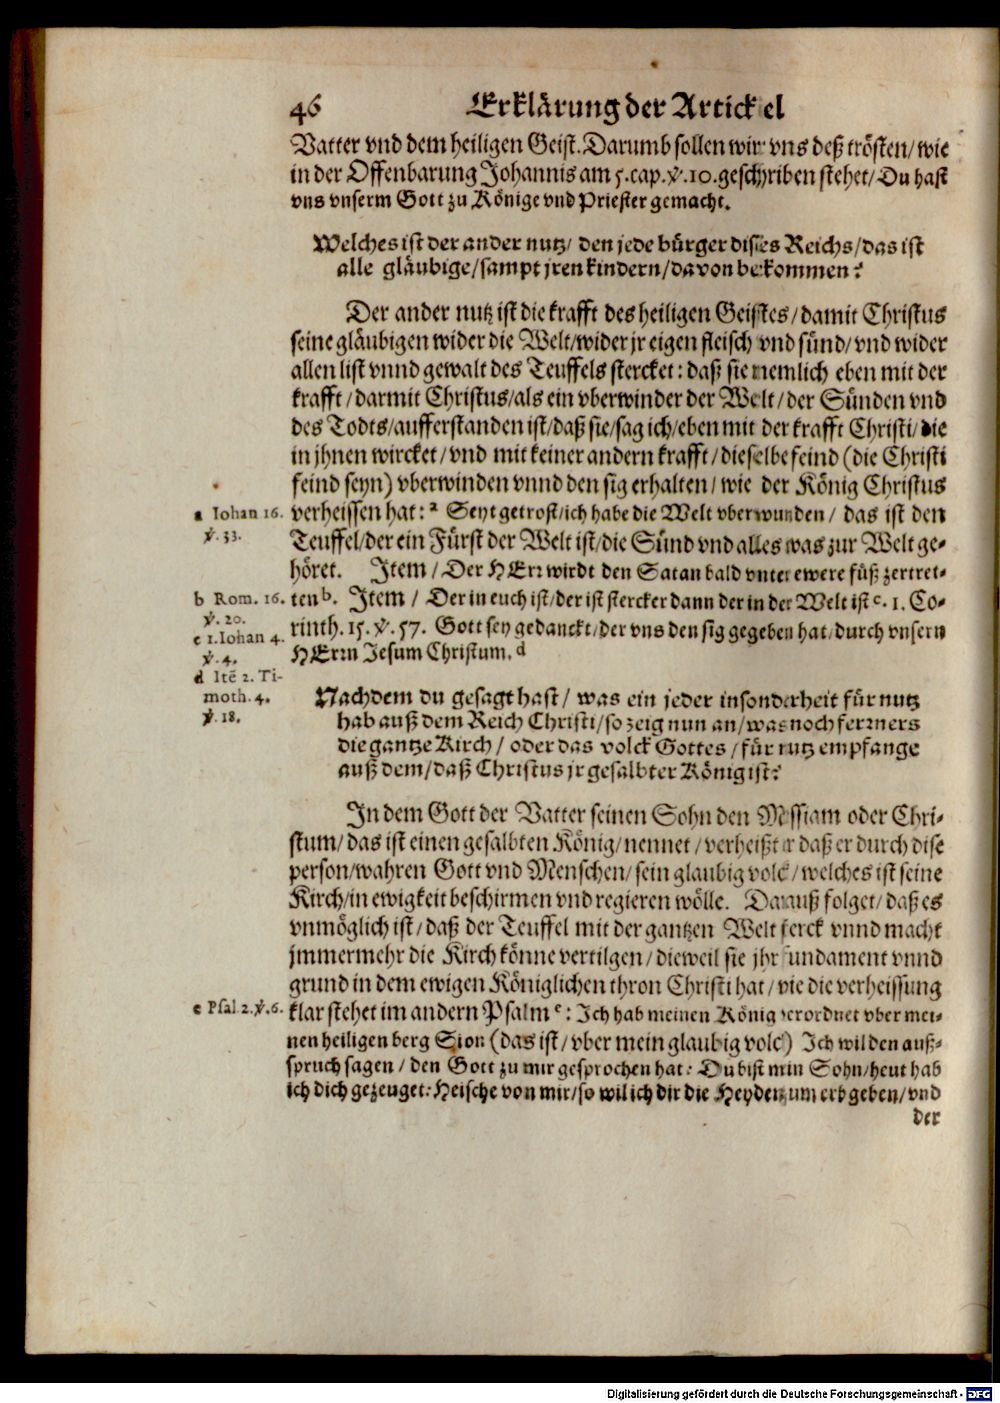 46 Erklärung der Artickel
Vatter vnd dem heiligen Geist. Darumb sollen wir vns deß trösten/ wie
in der Offenbarung Johannis am 5. cap. ℣. 10. geschriben stehet/ Du hast
vns vnserm Gott zu Könige vnd Priester gemacht.
Welches ist der ander nutz/ den jede bürger dises Reichs/ das ist
alle gläubige/ sampt jren kindern/ davon bekommen?
Der ander nutz ist die krafft des heiligen Geistes/ damit Christus
seine gläubigen wider die Welt/ wider jr eigen fleisch vnd sünd/ vnd wider
allen list vnnd gewalt des Teuffels stercket: daß sie nemlich eben mit der
krafft/ darmit Christus/ als ein vberwinder der Welt/ der Sünden vnd
des Todts/ aufferstanden ist/ daß sie/ sag ich/ eben mit der krafft Christi/ die
in jhnen wircket/ vnd mit keiner andern krafft/ dieselbe feind (die Christi
feind seyn) vberwinden vnnd den sig erhalten/ wie der König Christus
a Iohan 16. verheissen hat: a Seyt getrost/ ich habe die Welt vberwunden/ das ist den
℣. 33. Teuffel/ der ein Fürst der Welt ist/ die Sünd vnd alles was zur Welt ge-
höret. Item/ Der HErr wirdt den Satan bald vnter ewere füß zertret-
b Rom. 16. ten b. Item/ Der in euch ist/ der ist stercker dann der in der Welt ist c. 1. Co-
℣. 20.
c 1. Iohan 4. rinth. 15. ℣. 57. Gott sey gedanckt/ der vns den sig gegeben hat/ durch vnsern
℣. 4. HErrn Jesum Christum. d
d Itē 2. Ti-
moth. 4.
℣. 18.
Nachdem du gesagt hast/ was ein jeder insonderheit für nutz
hab auß dem Reich Christi/ so zeig nun an/ was noch ferrners
die gantze Kirch/ oder das volck Gottes/ für nutz empfange
auß dem/ daß Christus jr gesalbter König ist?
In dem Gott der Vatter seinen Sohn den Messiam oder Chri-
stum/ das ist einen gesalbten König/ nennet/ verheißt er daß er durch dise
person/ wahren Gott vnd Menschen/ sein glaubig volck/ welches ist seine
Kirch/ in ewigkeit beschirmen vnd regieren wölle. Darauß folget/ daß es
vnmöglich ist/ daß der Teuffel mit der gantzen Welt sterck vnnd macht
jmmermehr die Kirch könne vertilgen/ dieweil sie jhr fundament vnnd
grund in dem ewigen Königlichen thron Christi hat/ wie die verheissung
e Psal 2. ℣. 6. klar stehet im andern Psalm e: Ich hab meinen König verordnet vber mei-
nen heiligen berg Sion (das ist/ vber mein glaubig volck) Ich wil den auß-
spruch sagen/ den Gott zu mir gesprochen hat: Du bist mein Sohn/ heut hab
ich dich gezeuget: Heische von mir/ so wil ich dir die Heyden zum erb geben/ vnd
der
Digitalisierung gefördert durch die Deutsche Forschungsgemeinschaft - DFG